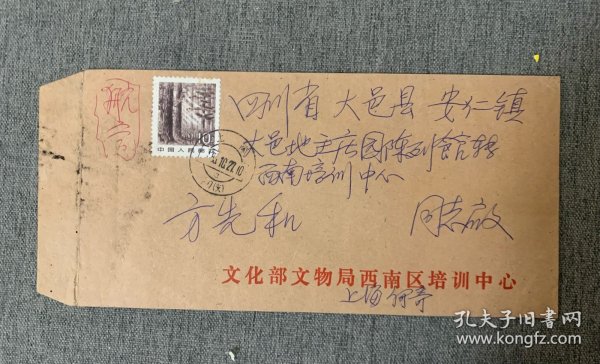 航信
10
中国人民邮政
四川省大邑县安仁镇
大邑地主庄园陈列馆转
西南培训中心
方先和 同志啟
文化部文物局西南区培训中心
上海何寄
孔夫子旧书网
www.kongfz.com